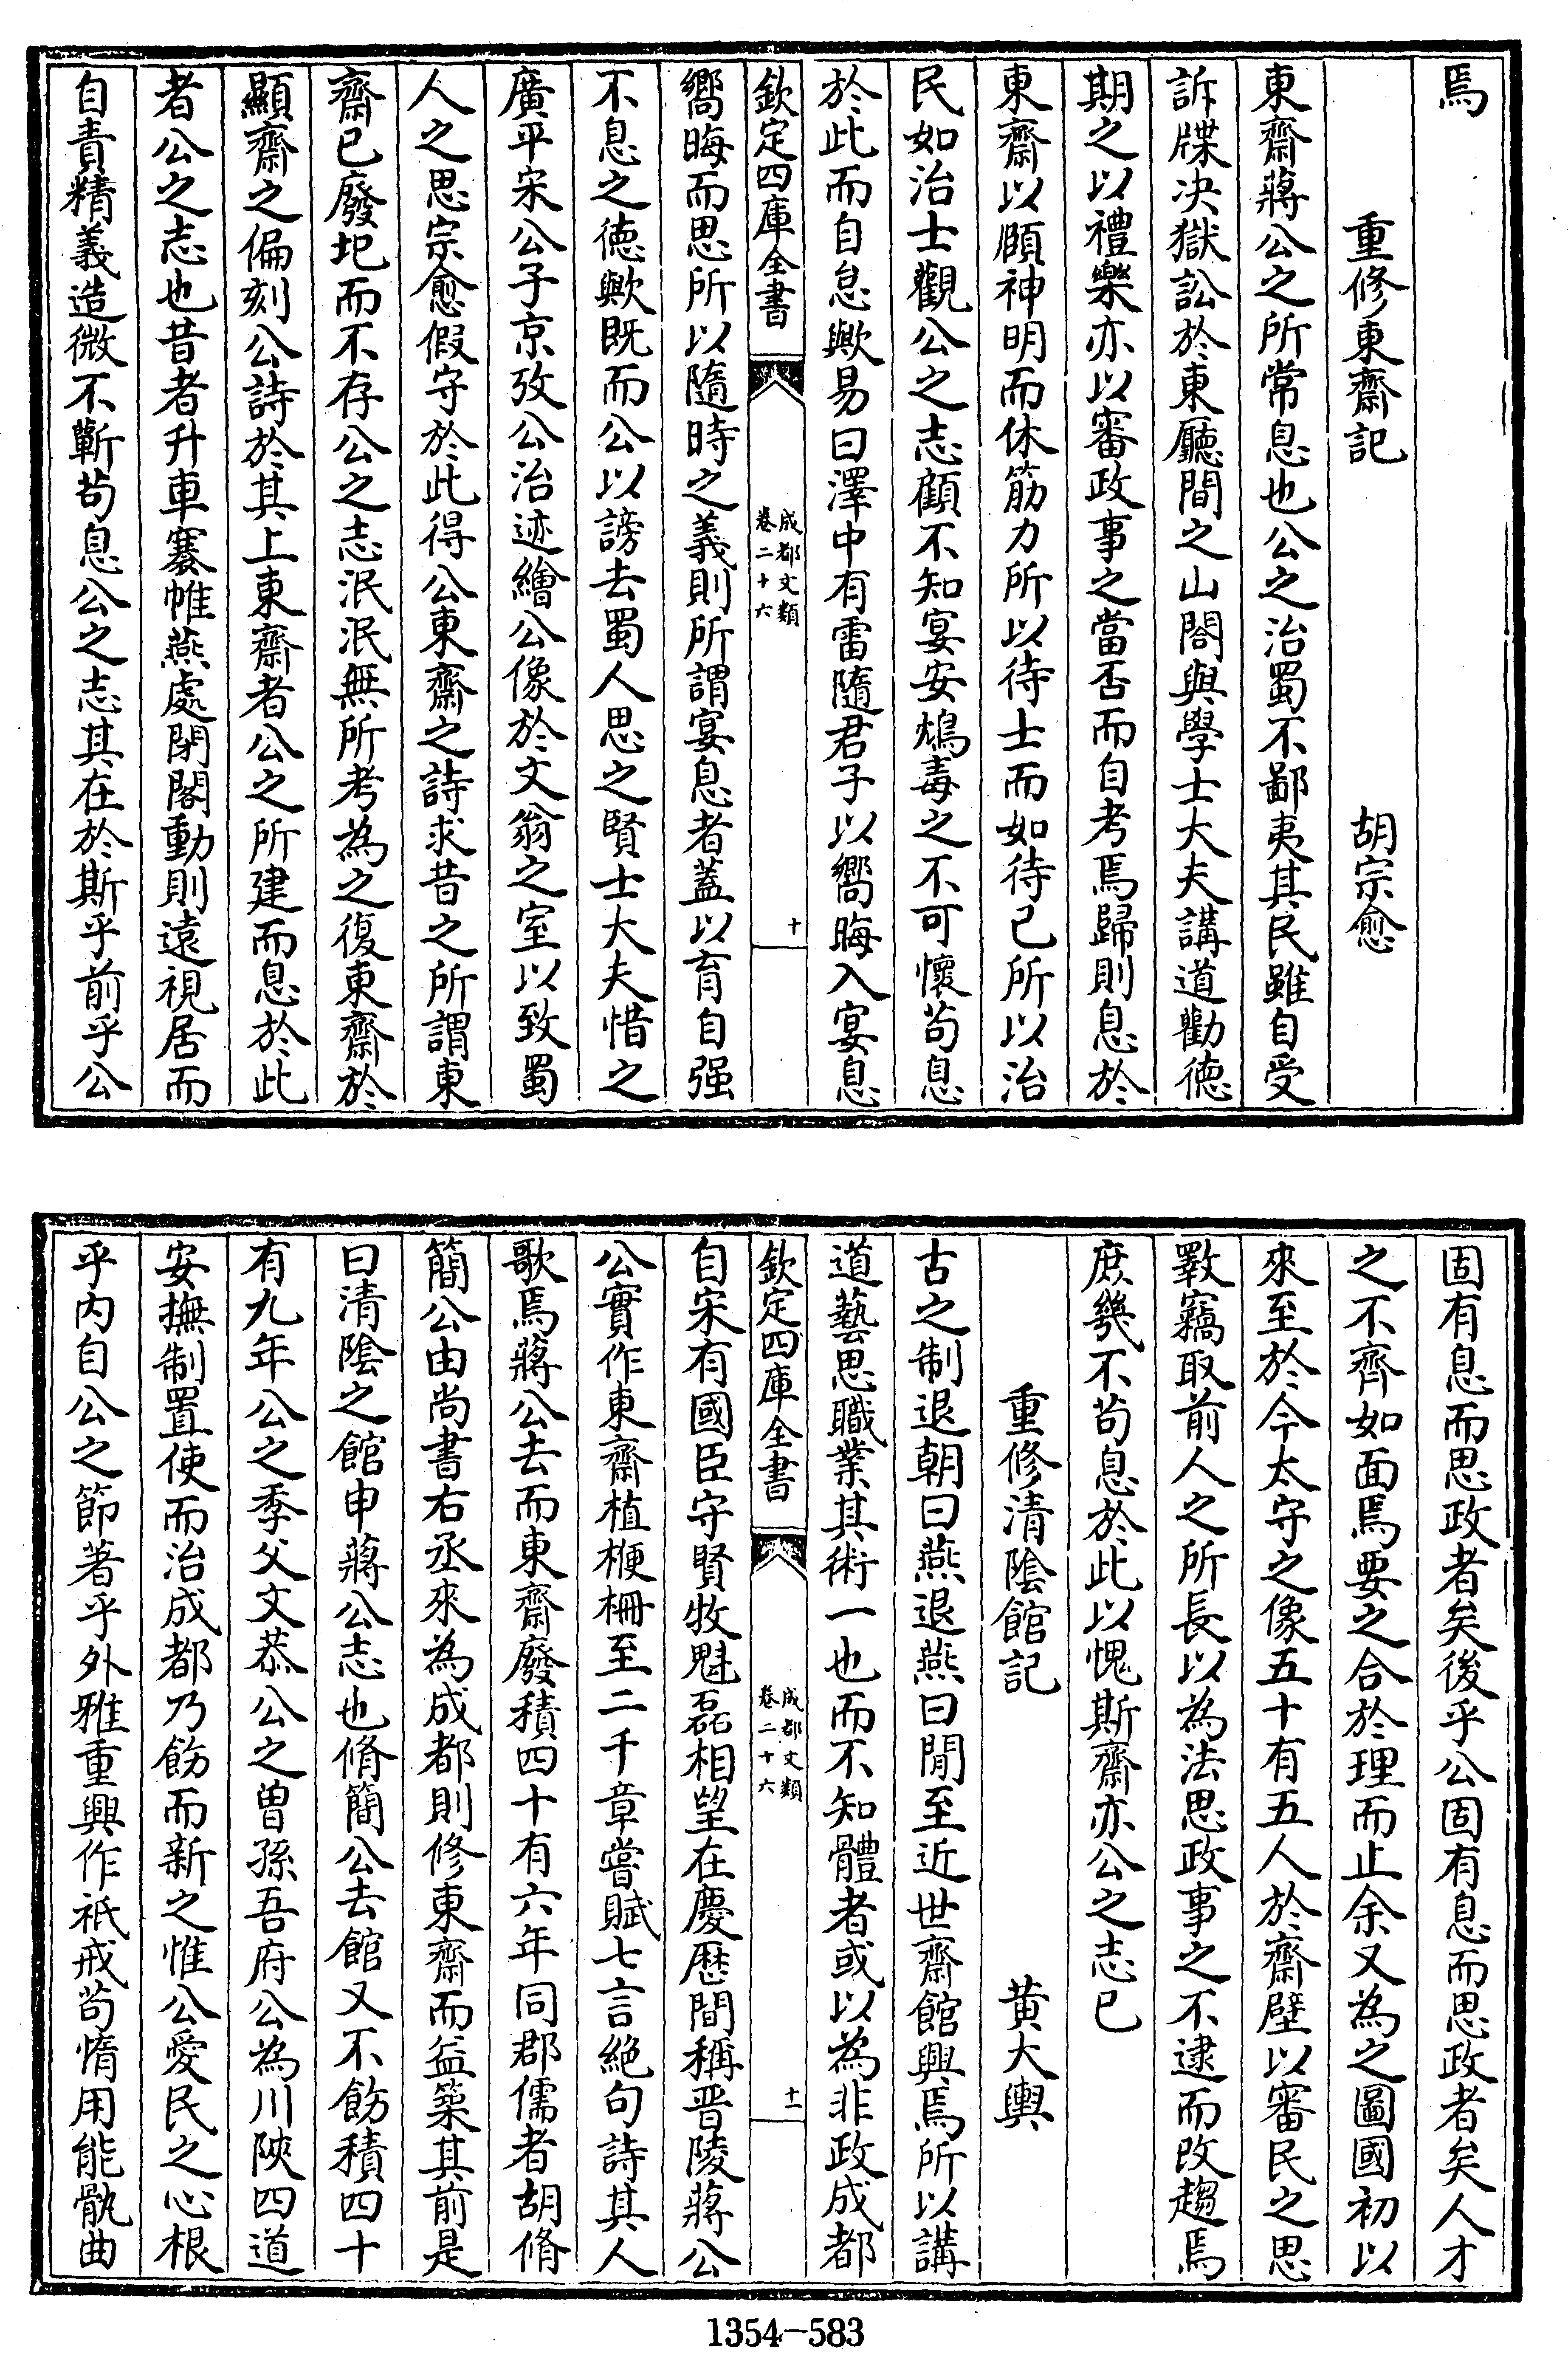 焉
重修東齋記 胡宗愈
東齋蔣公之所常息也公之治蜀不鄙夷其民雖自受
訴牒决獄訟於東廳間之山閣與學士大夫講道勸徳
期之以禮樂亦以審政事之當否而自考焉歸則息於
東齋以頤神明而休筋力所以待士而如待己所以治
民如治士觀公之志顧不知宴安鴆毒之不可懷茍息
於此而自怠歟易曰澤中有雷隨君子以嚮晦入宴息
欽定四庫全書
成都文類
卷二十六
十
嚮晦而思所以隨時之義則所謂宴息者蓋以育自强
不息之徳歟既而公以謗去蜀人思之賢士大夫惜之
廣平宋公子京攷公治迹繪公像於文翁之室以致蜀
人之思宗愈假守於此得公東齋之詩求昔之所謂東
齋已廢圯而不存公之志泯泯無所考為之復東齋於
顯齋之偏刻公詩於其上東齋者公之所建而息於此
者公之志也昔者升車褰帷燕處閉閣動則遠視居而
自責精義造微不蘄茍息公之志其在於斯乎前乎公
固有息而思政者矣後乎公固有息而思政者矣人才
之不齊如面焉要之合於理而止余又為之圖國初以
來至於今太守之像五十有五人於齋壁以審民之思
斁竊取前人之所長以為法思政事之不逮而改趨焉
庶幾不茍息於此以愧斯齋亦公之志已
重修清隂館記 黄大輿
古之制退朝曰燕退燕曰閒至近世齋館興焉所以講
道藝思職業其術一也而不知體者或以為非政成都
欽定四庫全書
成都文類
卷二十六
十一
自宋有國臣守賢牧魁磊相望在慶厯間稱晋陵蔣公
公實作東齋植楩柟至二千章嘗賦七言絶句詩其人
歌焉蔣公去而東齋廢積四十有六年同郡儒者胡脩
簡公由尚書右丞來為成都則修東齋而益築其前是
曰清隂之館申蔣公志也脩簡公去館又不飭積四十
有九年公之季父文恭公之曽孫吾府公為川陜四道
安撫制置使而治成都乃飭而新之惟公愛民之心根
乎内自公之節著乎外雅重興作祇戒茍惰用能骫曲
1354-583